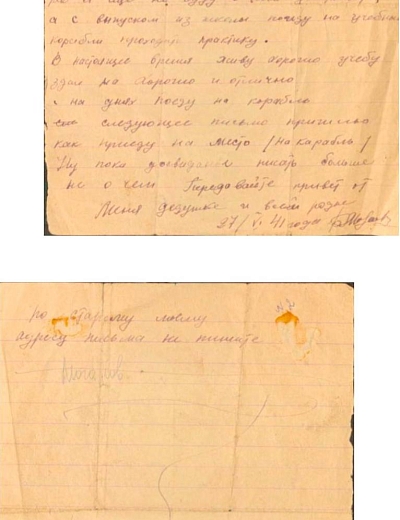 а с выпуском из школы поеду на учебный
корабль проходить практику.
В настоящее время живу хорошо учебу
сдал на хорошо и отлично
на днях поеду на корабль
следующее письмо пришлю
как приеду на место /на карабль/
Ну пока досвидание писать больше
не о чем Передавайте привет от
Меня дедушке и всей родне
27/VI 41 года
по старому моему
адресу письма не пишите